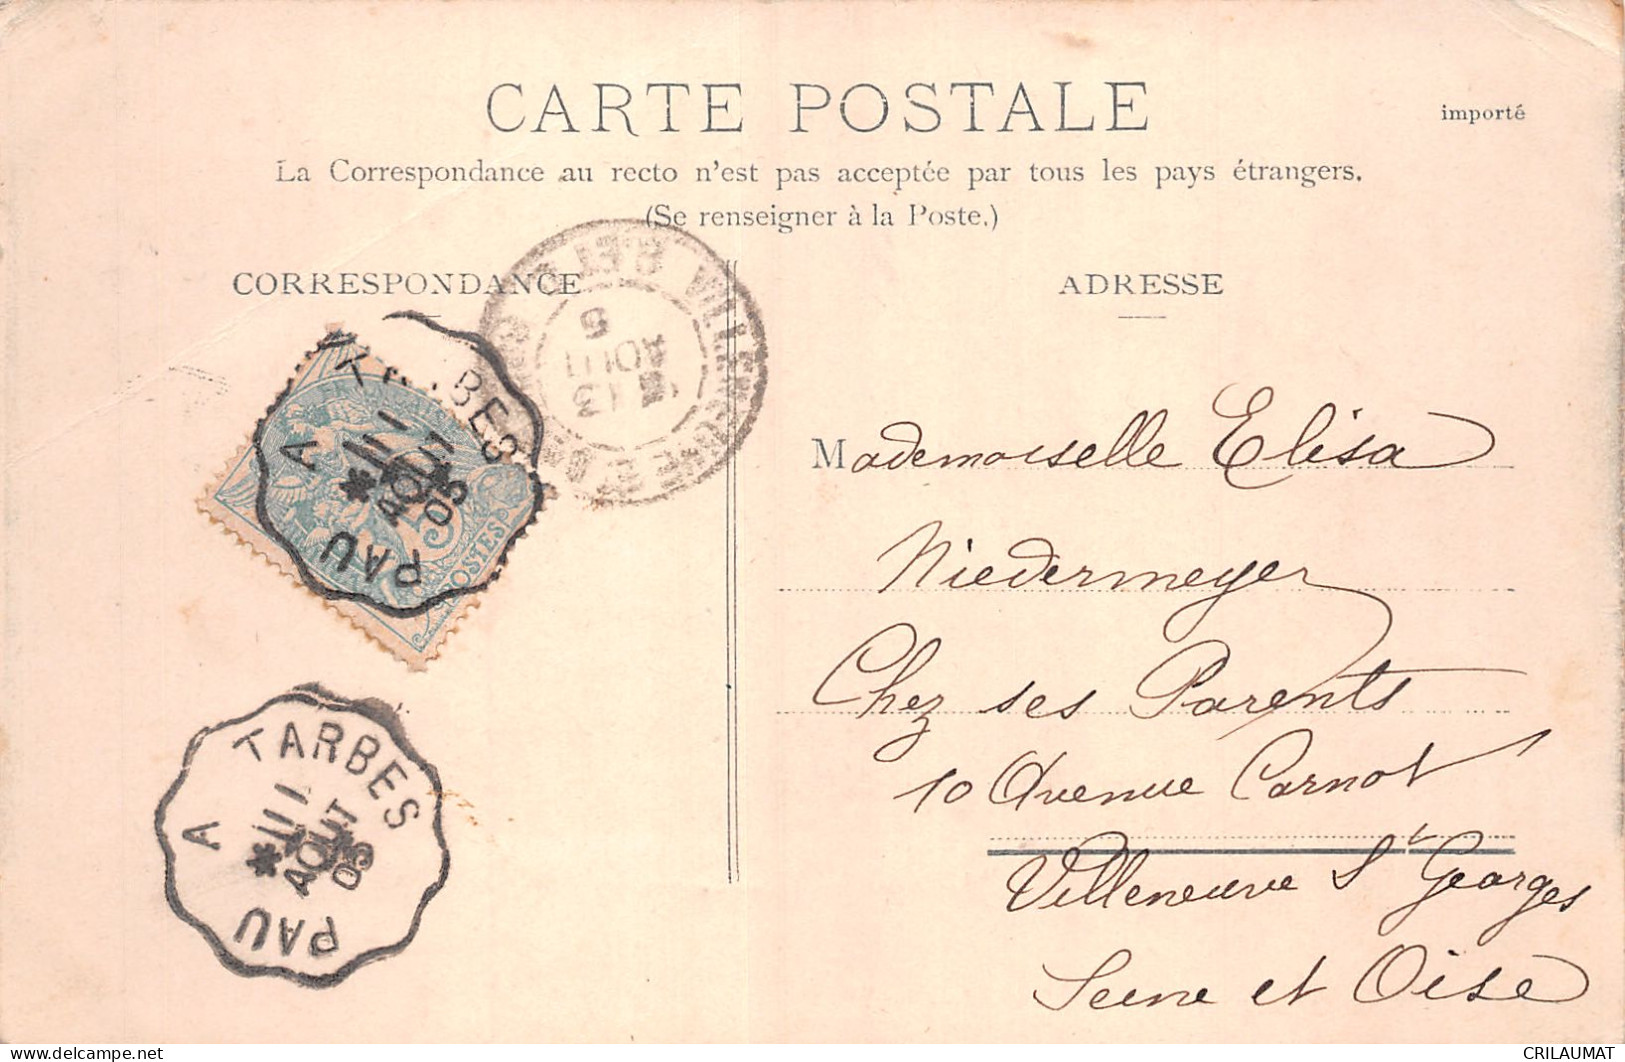 CARTE POSTALE
importé
La Correspondance au recto n'est pas acceptée par tous les pays étrangers.
(Se renseigner à la Poste.)
CORRESPONDANCE
ADRESSE
13
AOUT
5
TARBES
A
PAU
AOUT
05
5
POSTES
Mademoiselle Elisa
Niedermeyer
Chez ses Parents
10 Avenue Carnot
Villeneuve St Georges
Seine et Oise
TARBES
A
11
AOUT
05
PAU
delcampe.net
CRILAUMAT